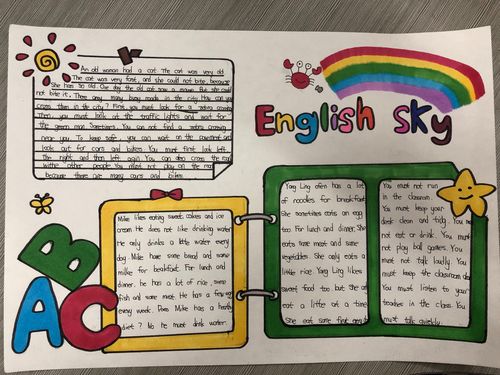 English Sky
An old woman had a cat. The cat was very old
The cat was very fast, and she could not bite, because
She was so old. One day the old cat saw a mouse. But she could
not bite it. There are many busy roads in the city. How can you
cross them in the city? First, you must look for a zebra crossing.
Then, you must look at the traffic lights and wait for
the green man. Sometimes, You can not find a zebra crossing
near you. To keep safe, you can wait on the pavement and
look out for cars and bikes. You must first look left,
the right and then left again. You can also cross the road
with other people. You must not play on the road,
because there are many cars and bikes.
Mike likes eating sweet, cakes and ice
cream. He does not like drinking water
He only drinks a little water every
day. Mike have some bread and some
milke for breakfast. For lunch and
dinner, he has a lot of rice, some
fish and some meat. He has a few eggs
every week. Does Mike has a healthy
diet? No he must drink water.
Yang Ling often has a lot
of noodles for breakfast
She sometimes eats an egg
too. For lunch and dinner. She
eats some meat and some
vegetables. She only eats a
little rice. Yang Ling likes
sweet food too but she only
eat a little at a time
She eat some fruit every
You must not run
in the classroom.
You must keep your
desk clean and tidy. You must
not eat or drink. You must
not play ball games. You
must not talk loudly. You
must keep the classroom clean
You must listen to your
teacher in the class. You
must talk quietly.
ABC